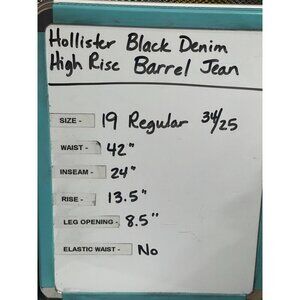 Hollister Black Denim
High Rise Barrel Jean
SIZE - 19 Regular 34/25
WAIST - 42"
INSEAM - 24"
RISE - 13.5"
LEG OPENING - 8.5"
ELASTIC WAIST - No